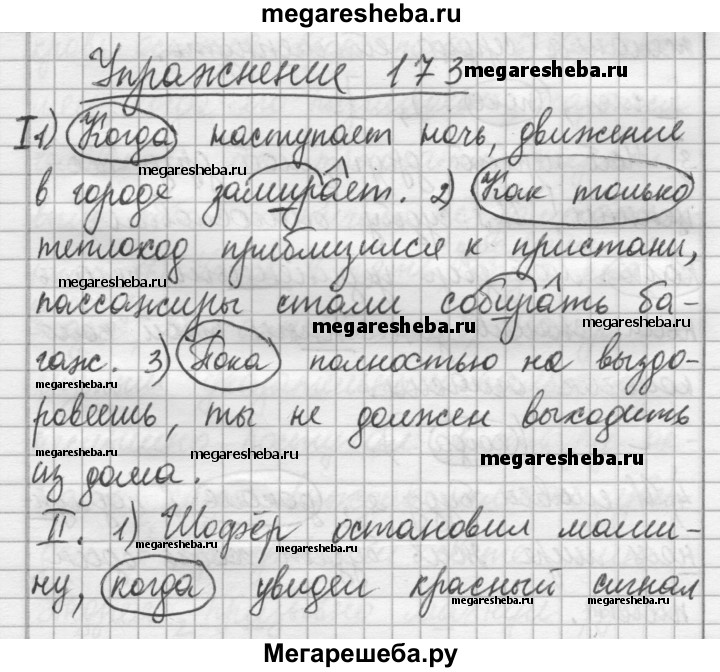 megaresheba.ru
Упражнение 173
megaresheba.ru
I 1) Когда наступает ночь, движение
megaresheba.ru
в городе замирает. 2) Как только
теплоход приблизился к пристани,
megaresheba.ru
пассажиры стали собирать ба-
megaresheba.ru
megaresheba.ru
гаж. 3) Пока полностью не выздо-
megaresheba.ru
ровеешь, ты не должен выходить
из дома.
megaresheba.ru
II. 1) Шофёр остановил маши-
megaresheba.ru
megaresheba.ru
ну, когда увидел красный сигнал
megaresheba.ru
megaresheba.ru
megaresheba.ru
Мегарешеба.ру